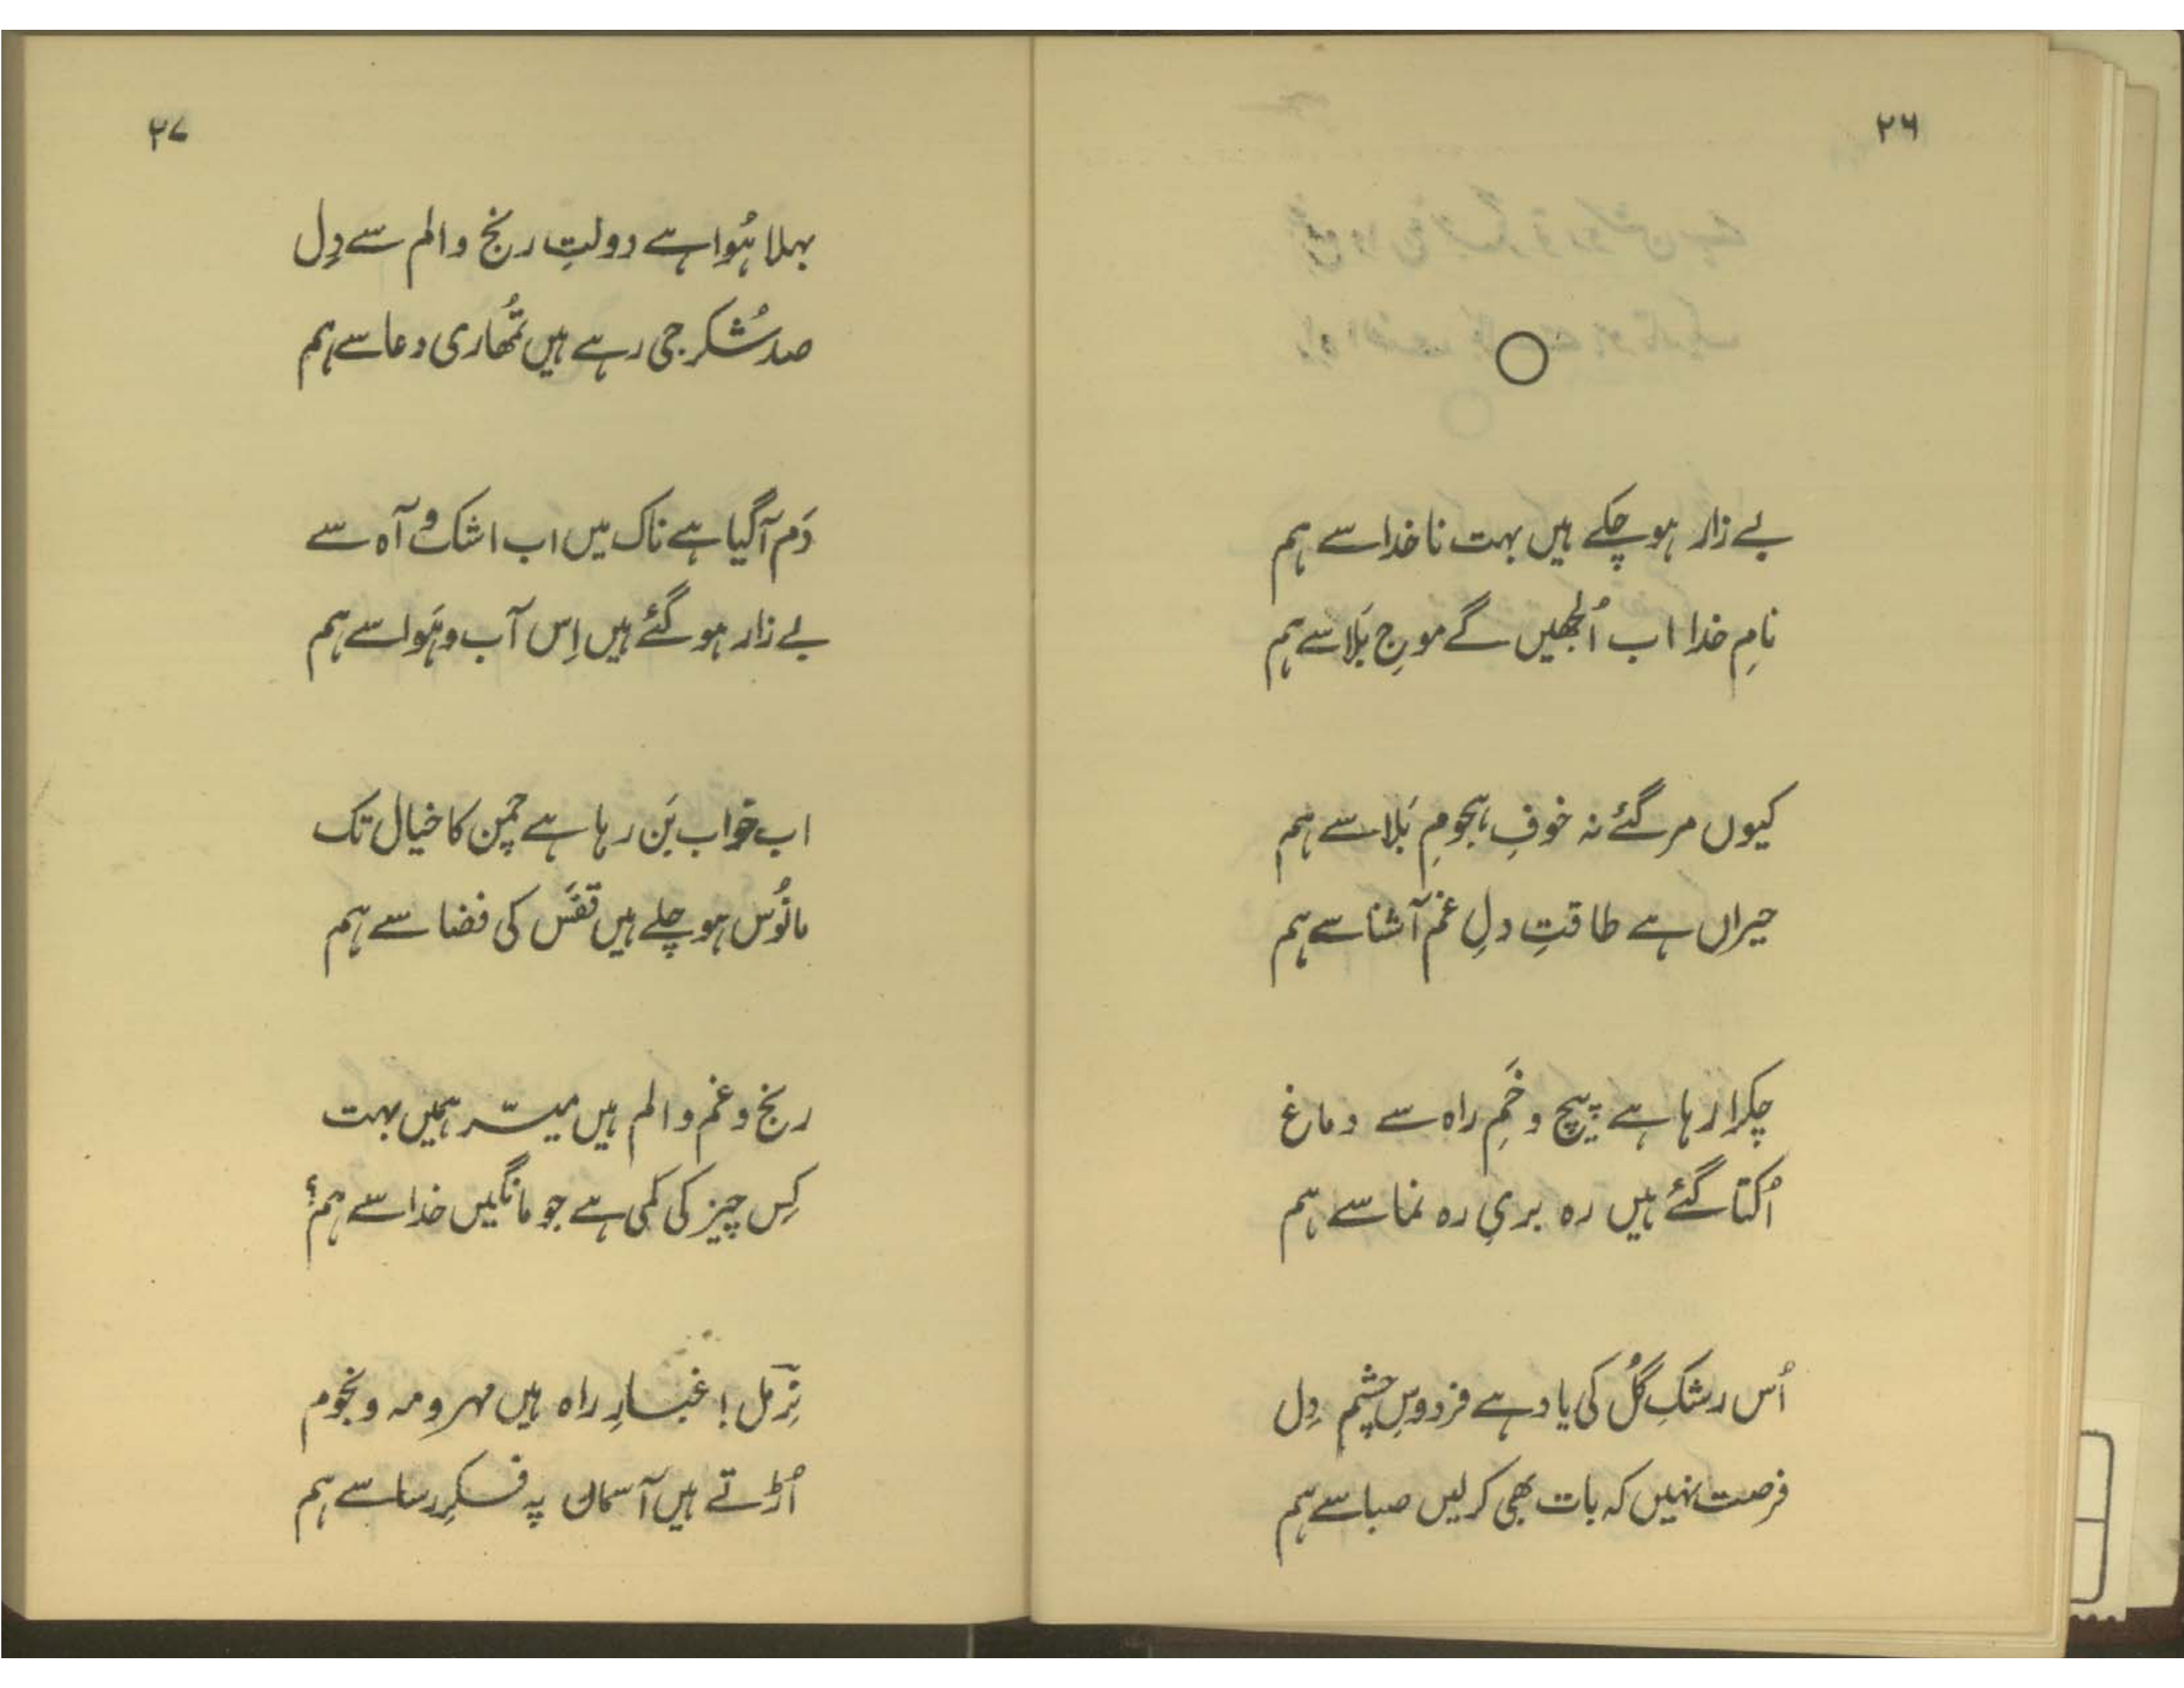 ۲۶
بے زار ہو چکے ہیں بہت ناخدا سے ہم
نامِ خدا اب اُلجھیں گے موجِ بَلا سے ہم
کیوں مر گئے نہ خوفِ ہجومِ بَلا سے ہم
حیراں ہے طاقتِ دلِ غم آشنا سے ہم
چکرا رہا ہے پیچ و خَمِ راہ سے دماغ
اُکتا گئے ہیں رہ بریِ رہ نما سے ہم
اُس رشکِ گُل کی یاد ہے فردوسِ چشم دِل
فرصت نہیں کہ بات بھی کرلیں صبا سے ہم
۲۷
بہلا ہُوا ہے دولتِ رنج و الم سے دِل
صد شُکر جی رہے ہیں تُمھاری دعا سے ہم
دَم آگیا ہے ناک میں اب اشک و آہ سے
بے زار ہو گئے ہیں اِس آب و ہَوا سے ہم
اب خواب بَن رہا ہے چمن کا خیال تک
مانُوس ہو چلے ہیں قفَس کی فضا سے ہم
رنج و غم و الم ہیں میسّر ہمیں بہت
کِس چیز کی کمی ہے جو مانگیں خدا سے ہم؟
نِرمل! غبارِ راہ ہیں مہر و مہ و نجوم
اُڑتے ہیں آسماں پہ فکرِ رسا سے ہم